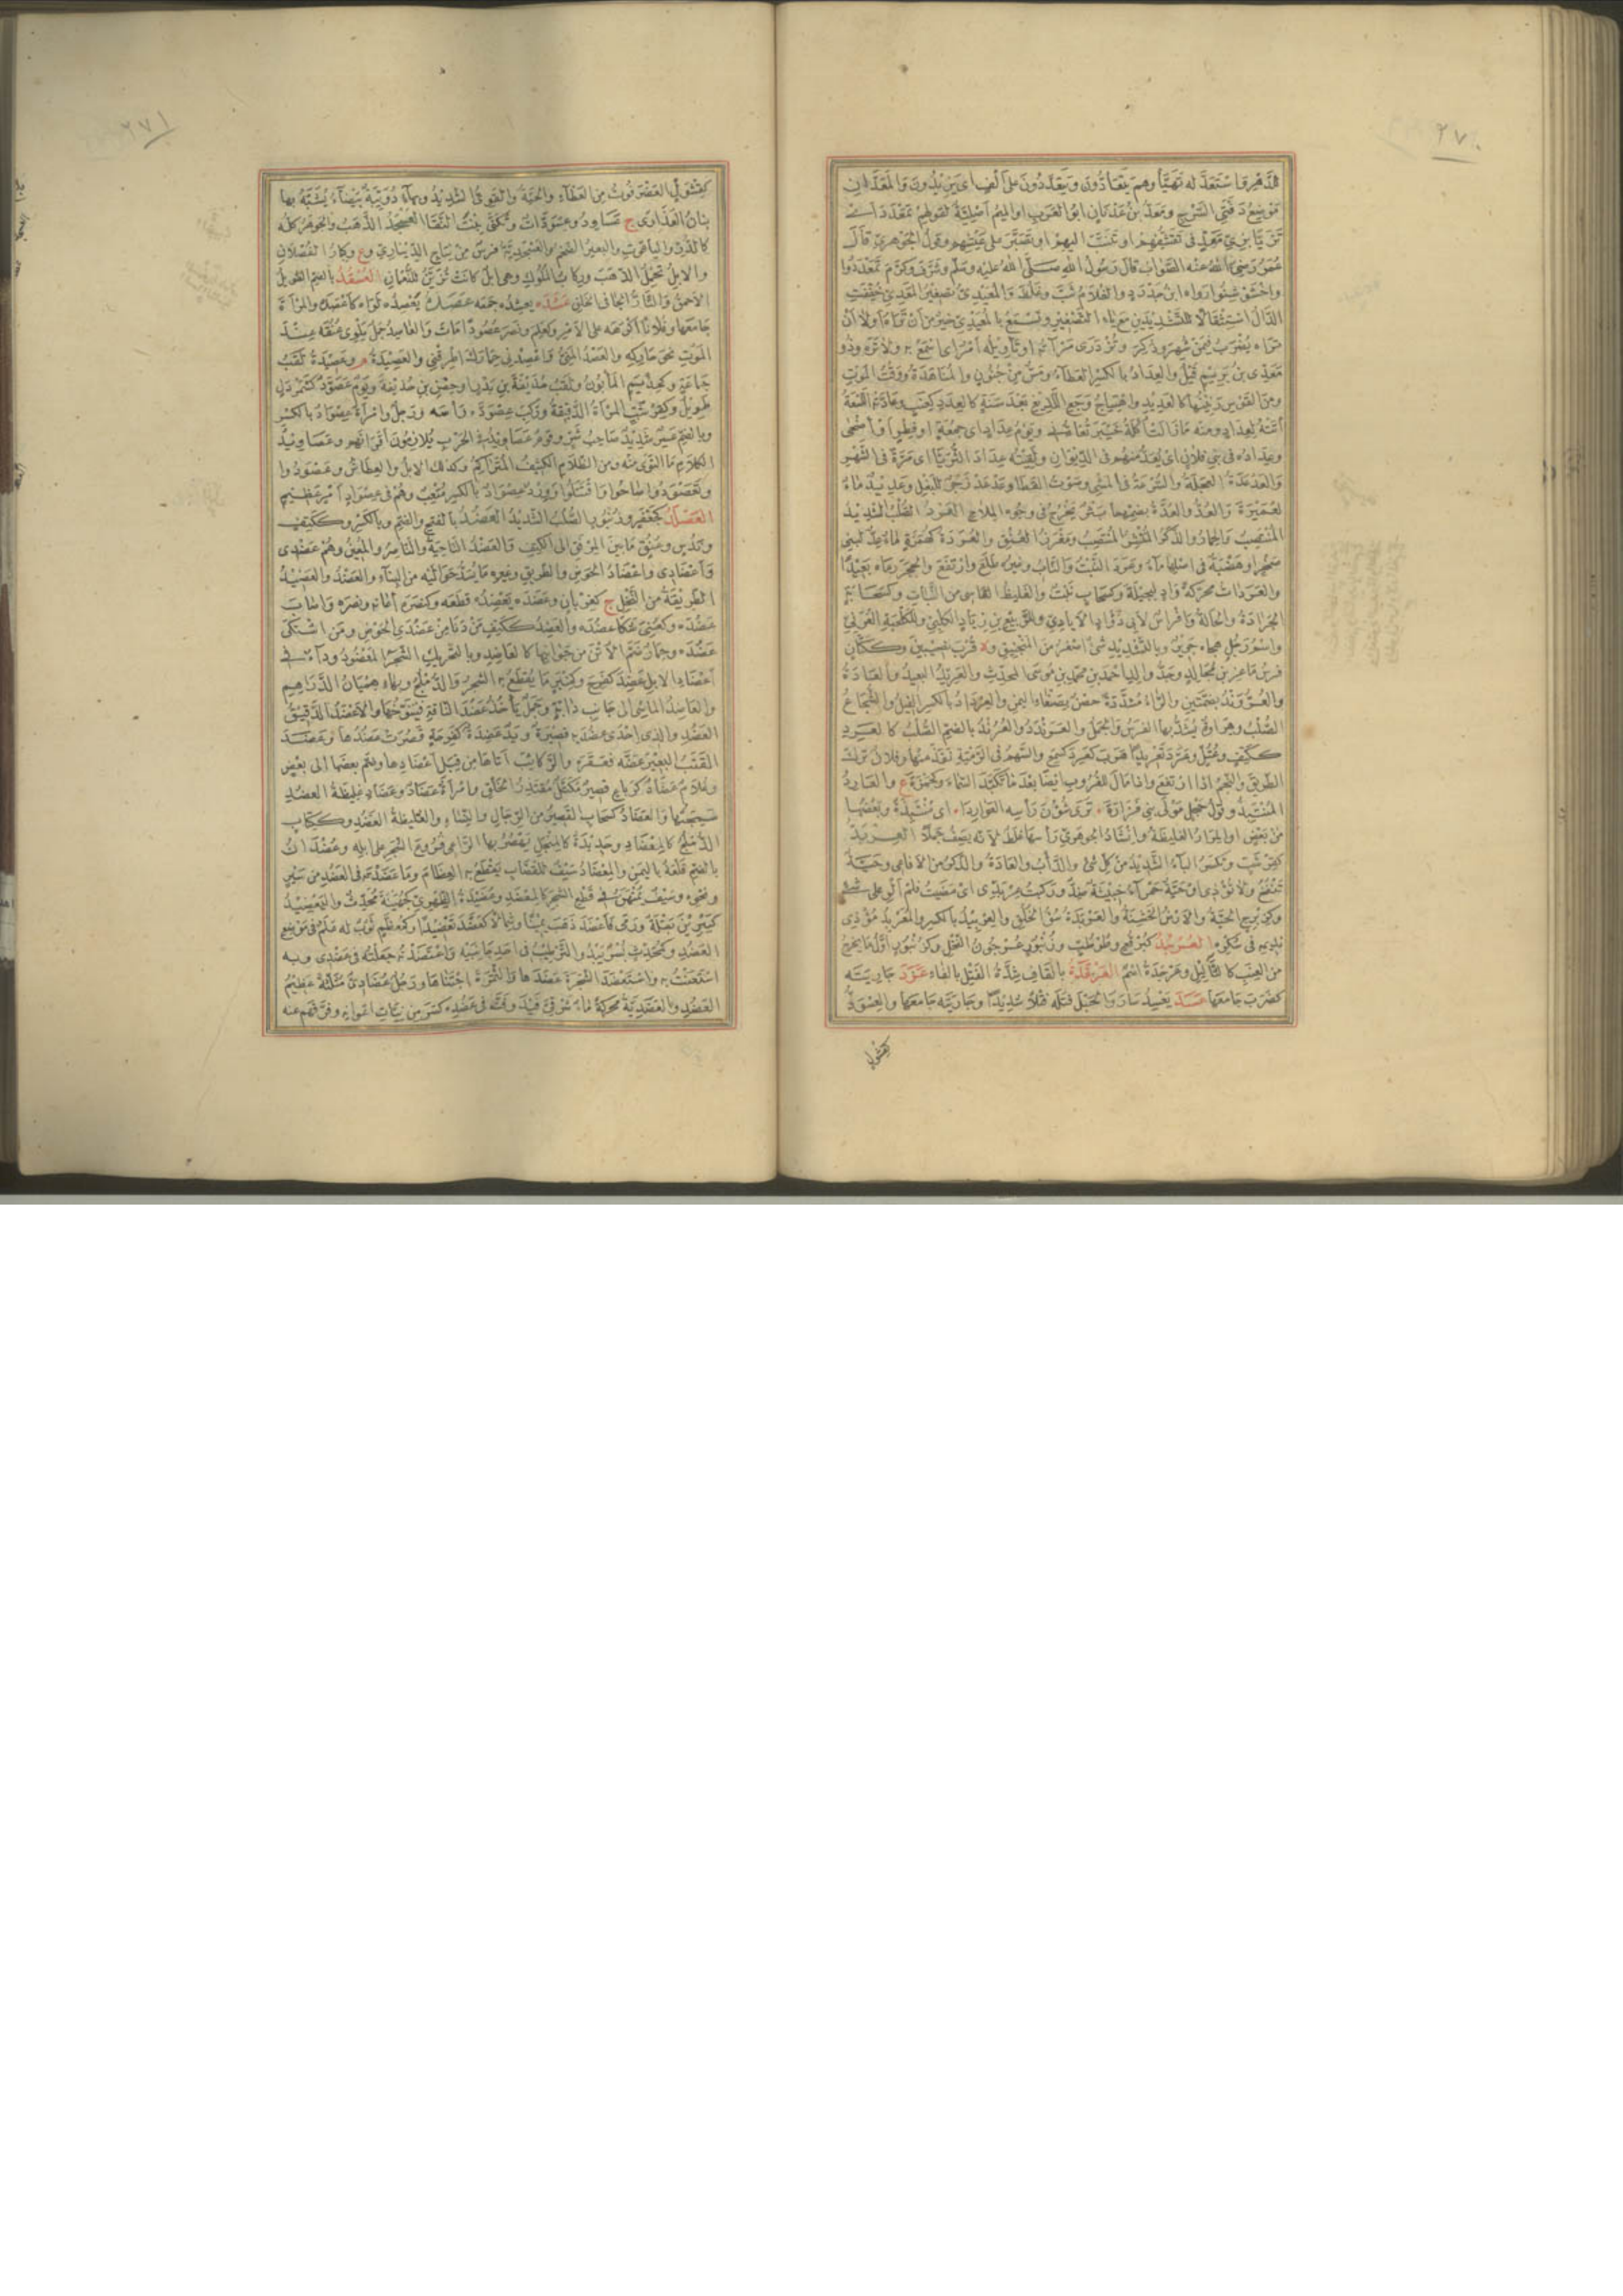 ٢٧٠
للدهر واستعد له تهيأ وهم يتعادون ويتعددون على ألف اى يزيدون والمعدان
موضع دفتى السرج ومعد بن عدنان ابو العرب او الميم اصلية لقولهم تمعدد اى
تزيا بزى معد فى تقشفهم او تنسب اليهم او تصبر على عيشهم وقول الجوهرى قال
عمر رضى الله عنه الصواب قال رسول الله صلى الله عليه وسلم وشرف وكرم تمعددوا
واخشوشنوا رواه ابن حدرد والغلام شب وغلظ والمعيدى تصغير المعدى خففت
الدال استثقالا للتشديدين مع ياء التصغير وتسمع بالمعيدى خير من ان تراه او لا ان
تراه يضرب فيمن شهر وذكر وتزدرى مرآته او تأويله امر اى اسمع به ولا تره وذو
معدى بن بريم قيل والعداد بالكسر العطاء ومس من جنون والمناهدة ووقت الموت
ومن القوس رنينها كالعديد واهتياج وجع اللديغ بعد سنة كالعدد كعنب وعادته اللسعة
أتته لعداد ومنه ما زالت أكلة خيبر تعادنى ويوم عداد اى جمعة او فطر او أضحى
وعداده فى بنى فلان اى يعد منهم فى الديوان ولقيته عداد الثريا اى مرة فى الشهر
والعدعدة العجلة والسرعة فى المشى وصوت القطا وعدعد زجر للبغل وعديد ماء
لعميرة والعد والعدة بضمهما بثر يخرج فى وجوه الملاح العرد الصلب الشديد
المنتصب والحمار والذكر المنتشر المنتصب ومغرز العنق والعردة كهمزة ماء عد لبنى
صخر او هضبة فى اصلها ماء وعرد النبت والناب وغيره طلع وارتفع والحجر رماه بعيدا
والعردات محركة واد لبجيلة وكسحاب نبت والغليظ القاسى من النبات وكسحابة
الجرادة والحالة وافراس لابى دؤاد الايادى وللربيع بن زياد الكلبى وللكلحبة العرنى
واسم رجل هجاه جرير وبالتشديد شئ اصغر من المنجنيق وة قرب نصيبين وككتان
فرس ماعز بن مجالد وجد والد احمد بن محمد بن موسى المحدث والعريد البعيد والعادة
الطريق والنجم اذا ارتفع واذا مال للغروب ايضا بعد ما تكبد السماء وكحمزة ع والعارد
المنتبذ وقول حجل مولى بنى فزارة ترى شؤون رأسه العواردا اى منتبذة بعضها
من بعض او المراد الغليظة وانشاد الجوهرى رأسها غلط لانه يصف جملا العربد
تنفخ ولا تؤذى او حية حمراء خبيثة ضد وركبت عربدى اى مضيت فلم ألو على شئ
نديمه فى سكره العرجد كبرقع وطرطب وزنبور عرجون النخل وكزنبور اول ما يخرج
من العنب كالثآليل وعرجدة اسم العرقدة بالقاف شدة الفتل بالفاء عزد جاريته
كضرب جامعها عسد يعسد سار والحبل فتله فتلا شديدا وجاريته جامعها والعسودّ
كقثول
٢٧١
كقثول العضرفوط من العظاء والحية والقوى الشديد وبهاء دويبة بيضاء يشبه بها
بنان العذارى ج عساود وعسودات وتكنى بنت النقا العسجد الذهب والجوهر كله
كالدر والياقوت والبعير الضخم والعسجدية فرس من نتاج الدينارى وع وكبار الفصلان
والابل تحمل الذهب وركاب الملوك وهى ابل كانت تزين للنعمان العسقد بالضم الطويل
الاحمق والتار الجافى الخلق عصده يعصده لواه كاعصده والمرأة
جامعها وفلانا اكرهه على الامر وكعلم ونصر عصودا مات والعاصد جمل يلوى عنقه عند
الموت نحو حاركه والعصد المنى واعصدنى حمارك اطرقنى والعصيدة م وعصيدة لقب
جماعة وكحذيم المأبون ولقب حذيفة بن بدر او حصن بن حذيفة ويوم عصود كشمردل
وبالضم عسر شديد صاحب شر وقوم عصاويد فى الحرب يلازمون اقرانهم وعصاويد
الكلام ما التوى منه ومن الظلام الكثيف المتراكم وكذلك الابل والعطاش وعصودوا
وتعصودوا صاحوا واقتتلوا وورد عصواد بالكسر متعب وهم فى عصواد امر عظيم
العصلد كجعفر وزنبور الصلب الشديد العضد بالفتح والضم وبالكسر وككتف
وندس وعنق ما بين المرفق الى الكتف والعضد الناحية والناصر والمعين وهم عضدى
وأعضادى واعضاد الحوض والطريق وغيره ما يشد حواليه من البناء والعضد والعضيد
الطريقة من النخل ج كغربان وعضده يعضده قطعه وكنصره اعانه ونصره واصاب
عضده وكعنى شكا عضده والعضد ككتف من دنا من عضدى الحوض ومن اشتكى
عضده وحمار ضم الاتن من جوانبها كالعاضد وبالتحريك الشجر المعضود وداء فى
اعضاد الابل عضد كفرح وكمنبر ما يقطع به الشجر والدملج وبهاء هميان الدراهم
والعاضد الماشى الى جانب دابة وجمل يأخذ عضد الناقة فيتنوخها والاعضد الدقيق
العضد والذى احدى عضديه قصيرة ويد عضدة كفرحة قصرت عضدها وعضد
القتب البعير عضه فعقره والركائب اتاها من قبل اعضادها وضم بعضها الى بعض
وغلام عضاد كرباع قصير مكتل مقتدر الخلق وامرأة عضاد وعضاد غليظة العضد
سمجتها والعضاد كسحاب القصير من الرجال والنساء والغليظة العضد وككتاب
الدملج كالمعضاد وحديدة كالمنجل يهصر بها الراعى فروع الشجر على ابله وعضدان
بالضم قلعة باليمن والمعضاد سيف للقصاب يقطع به العظام وما عضدته فى العضد من سير
ونحوه وسيف يمتهن فى قطع الشجر كالمعضد
العضد وكمحدث بسر يبدو الترطيب فى احد جانبيه واعتضدته جعلته فى عضدى وبه
استعنت به واستعضد الشجرة عضدها والثمرة اجتناها ورجل عضادى مثلثة عظيم
العضد والعضدية محركة ماء شرقى فيد وفت فى عضده كسر من نيات اعوانه وفرقهم عنه